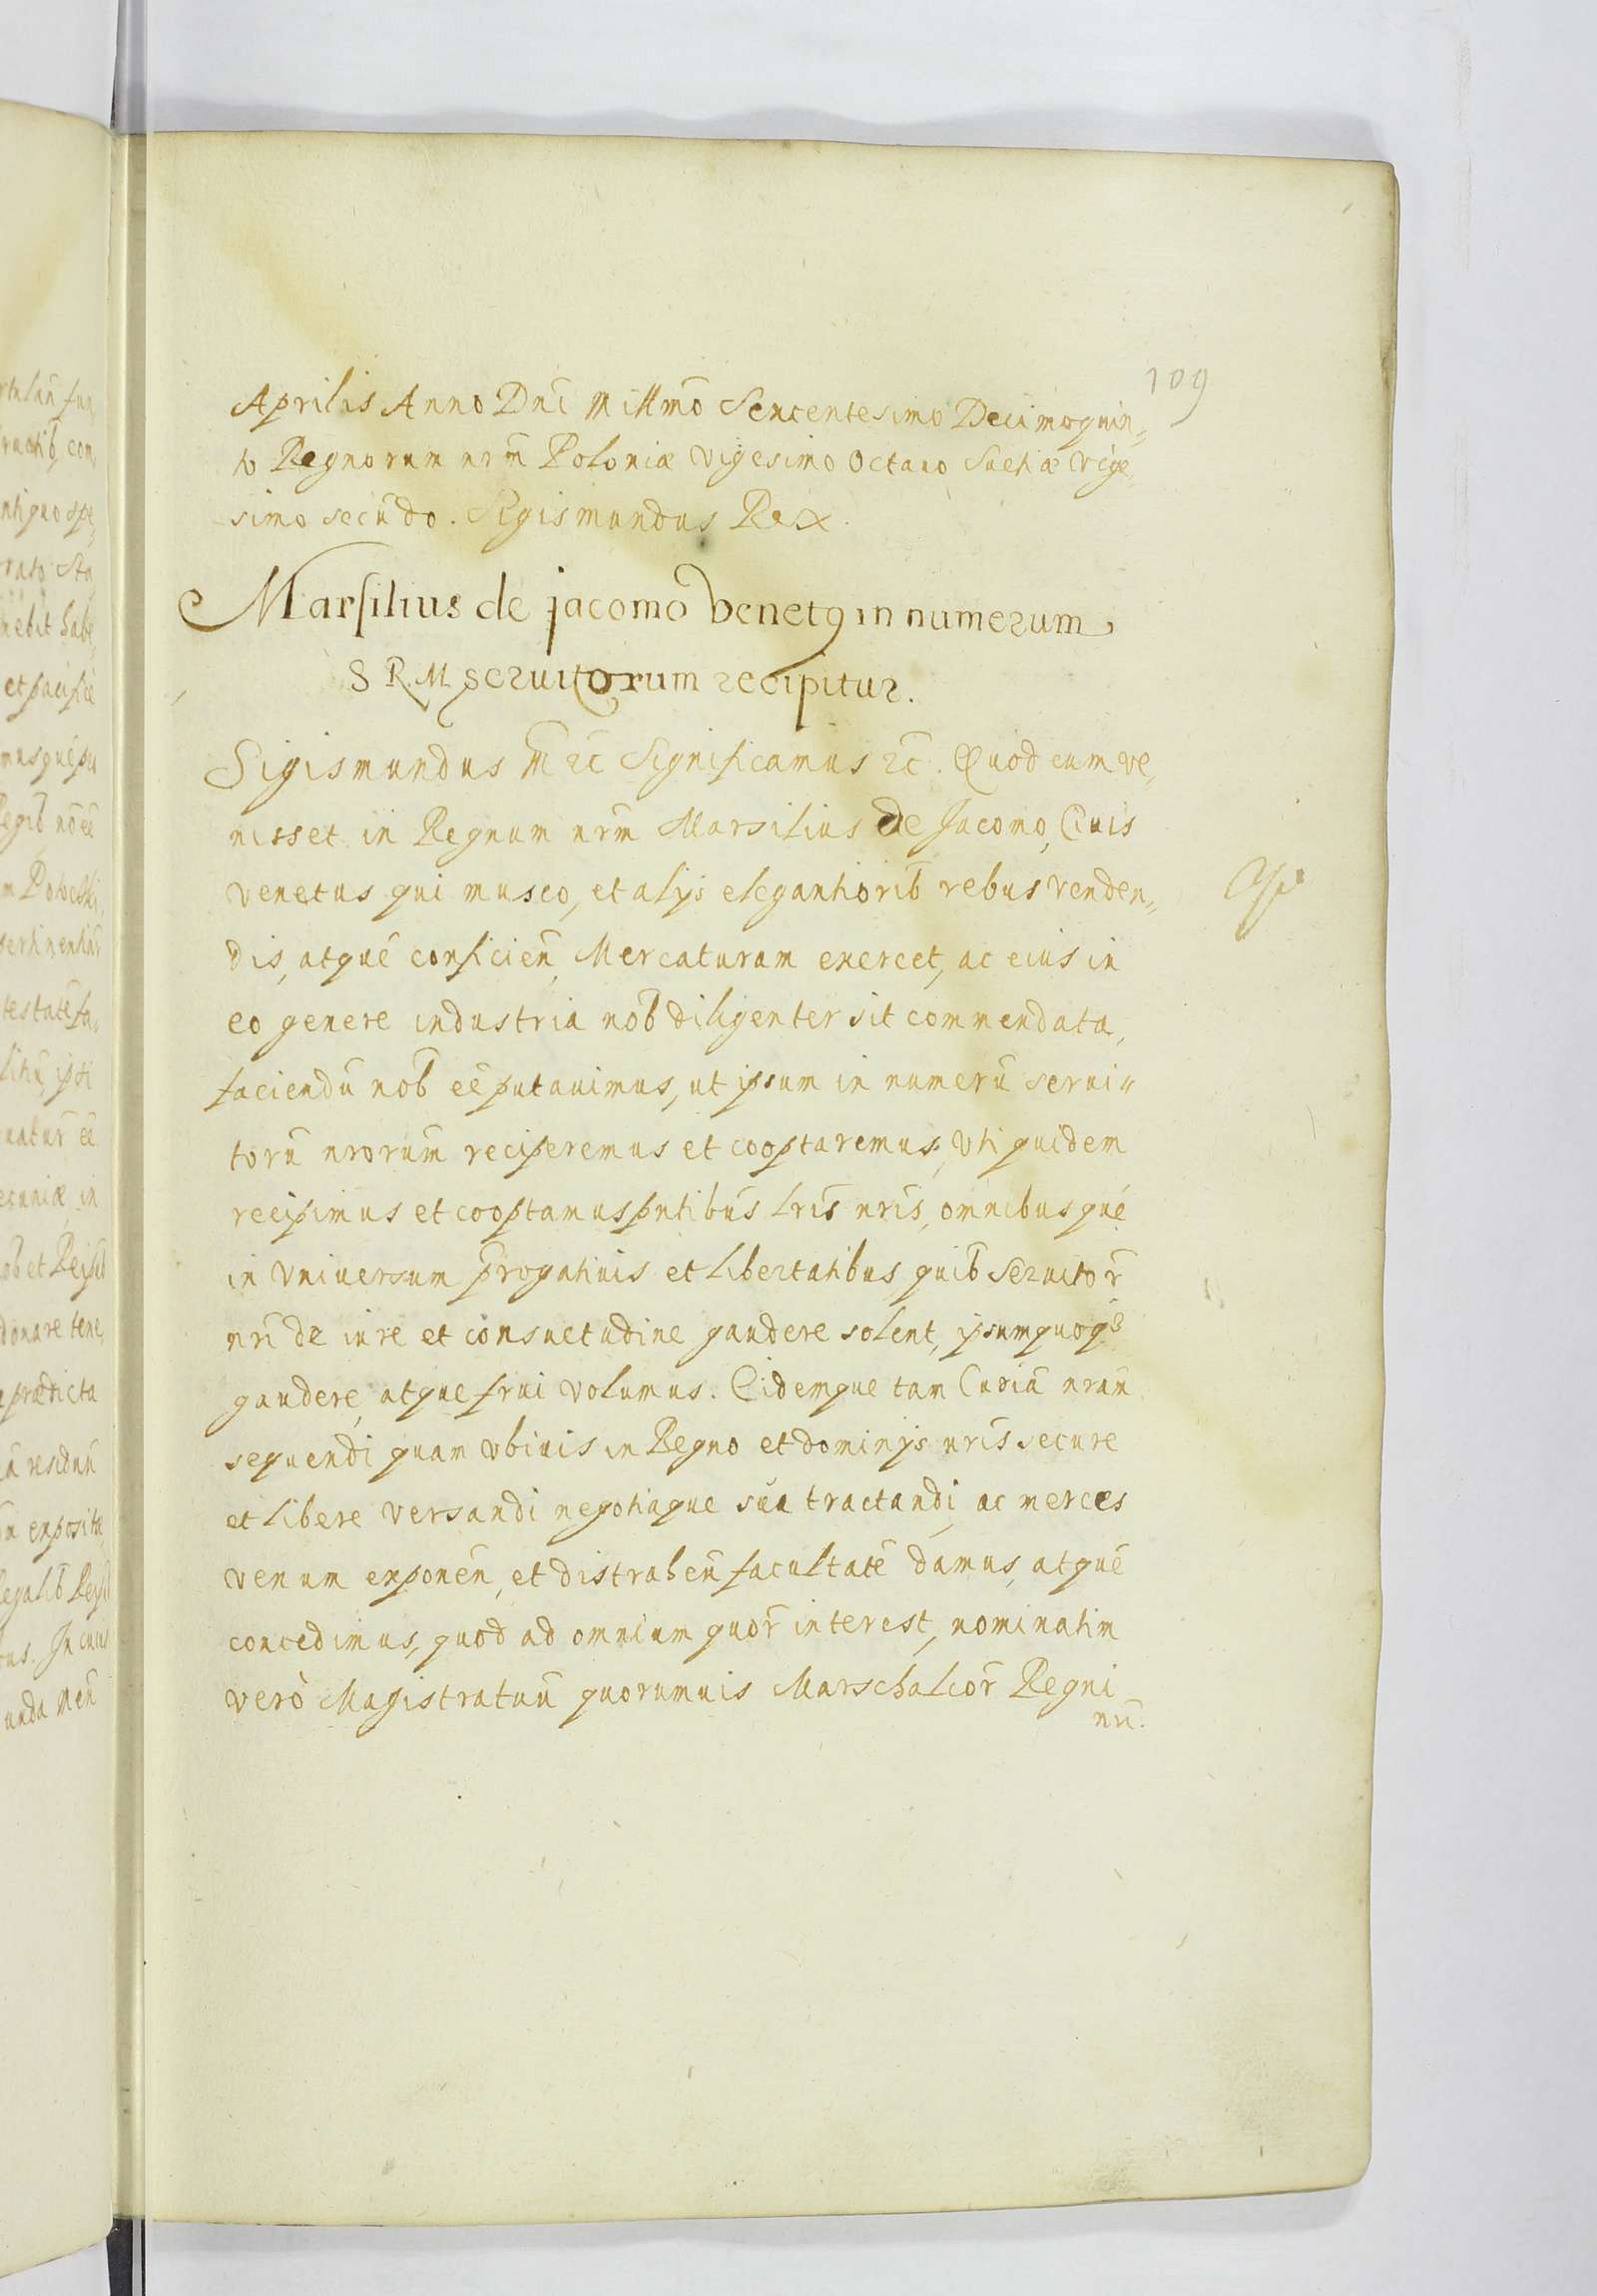 109
Aprilis Anno Dnī Millmō Sexcentesimo Decimoquin„
to Regnorum nrm̄ Poloniæ vigesimo octauo Suetiæ vige„
simo secūdo. Sigismundus Rex.
Marsilius de jacomo Venet9 in numerum
S R. M. seruitorum recipitur.
Sigismundus III zc̄ Significamus zc̄. Quod cum ve„
nisset in Regnum nrm̄ Marsilius de Jacomo, Ciuis
venetus qui museo, et alijs elegantiorib̄ rebus venden„
dis, atquē conficien̄, Mercaturam exercet, ac eius in
eo genere industria nob̄ diligenter sit commendata,
faciendū nob̄ eē putauimus, ut ipsum in numerū serui„
torū nrorum̄ reciperemus et cooptaremus, vti quidem
recipimus et cooptamus pn̄tibus lris̄ nris̄, omnibusquē
in vniuersum p̄rogatiuis et libertatibus, quib̄ seruitor̄
nrī de iure et consuetudine gaudere solent, ipsum quoq3
gaudere, atque frui volumus. Eidemque tam Curiā nram̄
sequendi quam vbiuis in Regno et dominijs nris̄ secure
et libere versandi negotiaque sua tractandi, ac merces
venum exponen̄, et distrahen̄ facultatē damus, atquē
concedimus, quod ad omnium quor̄ interest, nominatim
verò Magistratuū quorumuis Marschalcor̄ Regni
nrī.